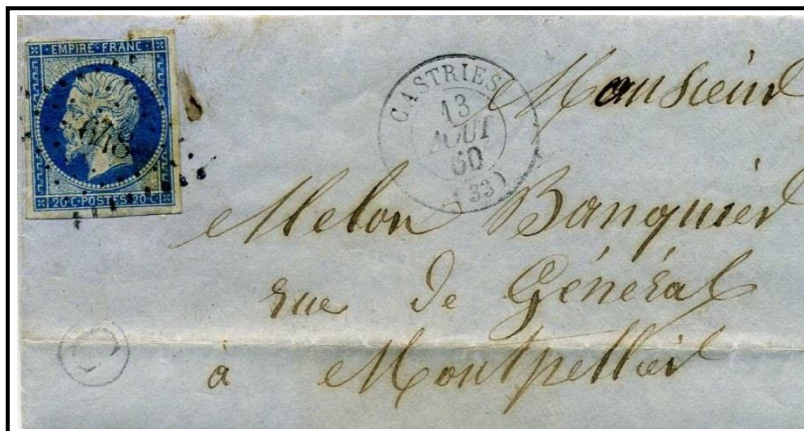 EMPIRE · FRANC ·
20 · C · POSTES · 20 · C ·
CASTRIES
13
AOUT
60
(33)
Monsieur
Melon Banquier
rue de Général
à Montpellier
C